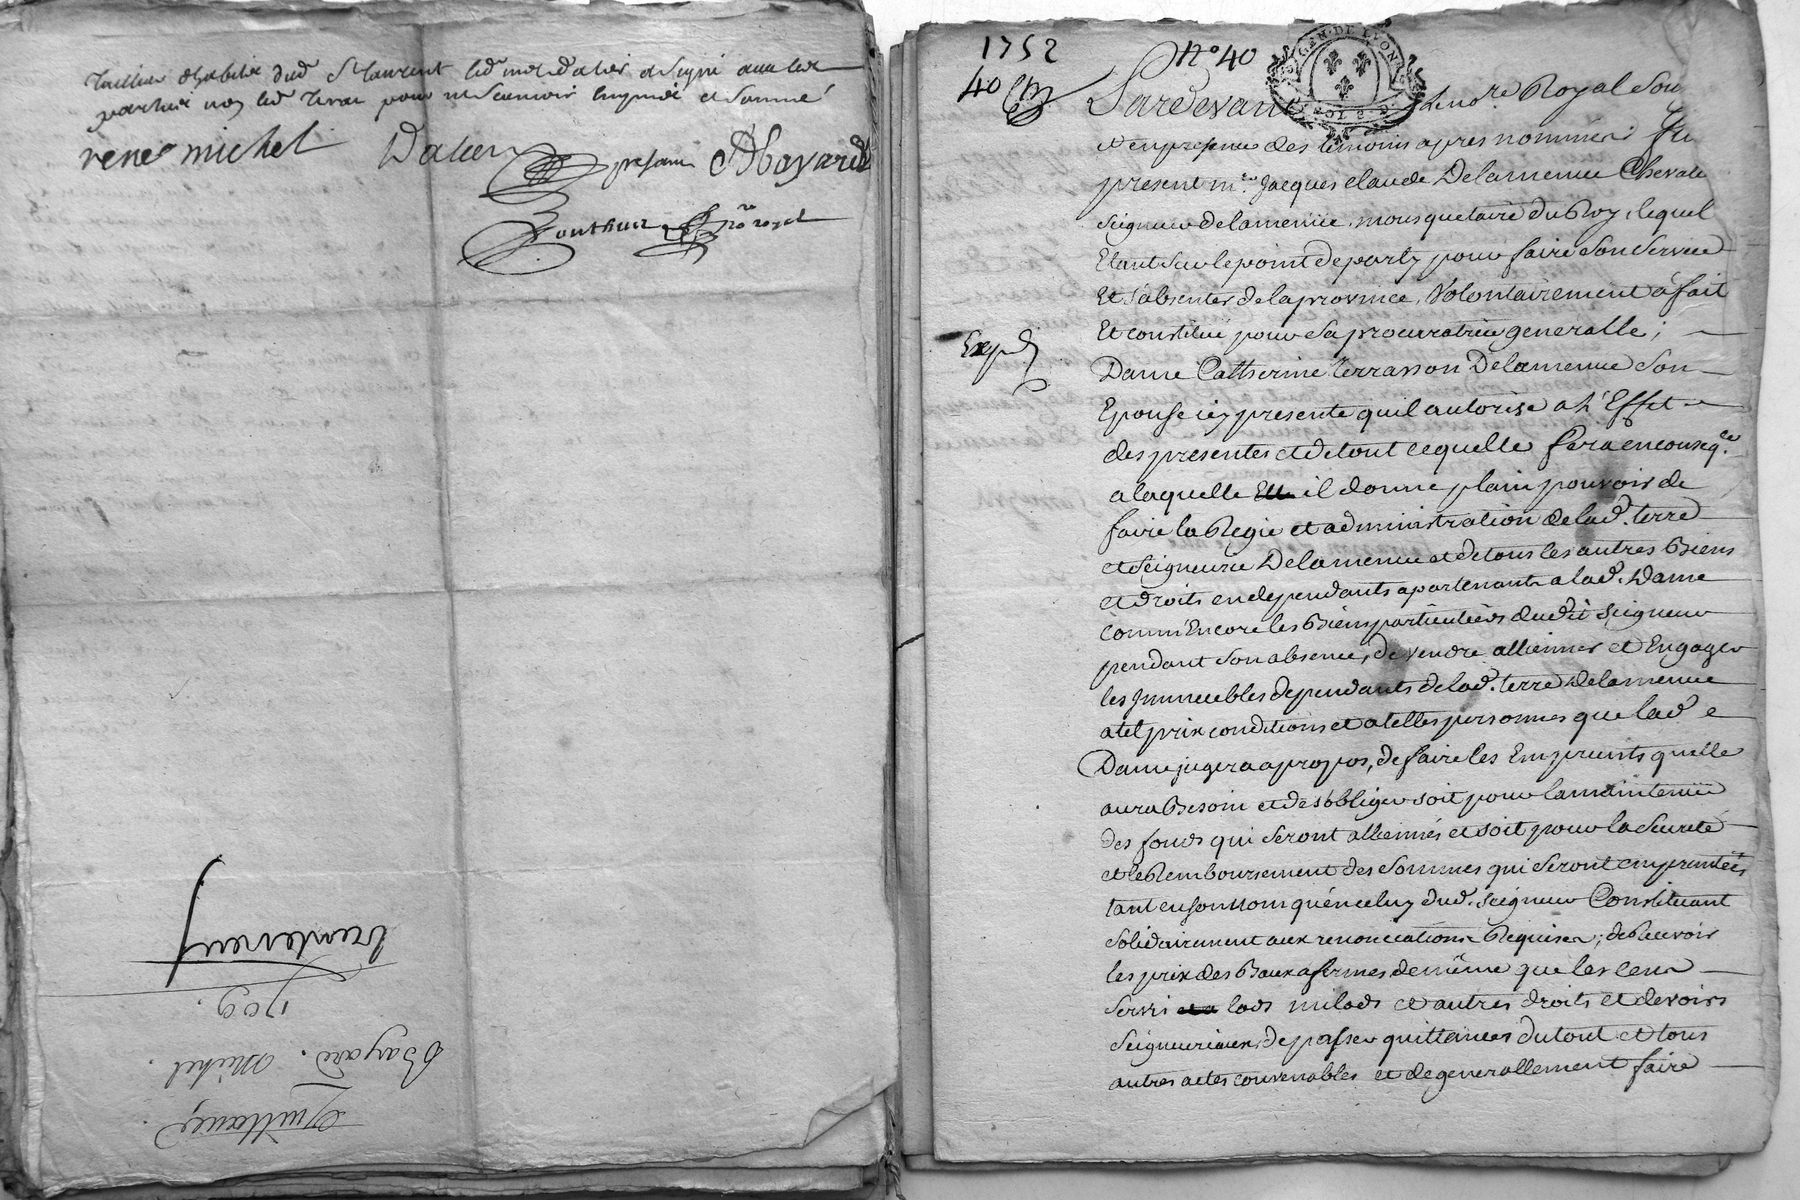 tailleur habitant dud St laurent led michel a lieu et signé avec led
partie non led pour ne scavoir enquis et sommé
rene michel Dalier present ABayard
Ponthus no.re royal
trenteneuf
709.
Bayard. Michel.
Quittance
1752 n° 40
40
GEN. DE LYON
Pardevant le no.re Royal Sou.
et en presence des temoins apres nommés fu
present m.re Jacques claude Delamenue Chevalier
seigneur delamenue, mousquetaire du Roy, lequel
Etant sur le point de party pour faire son service
Et s'absenter de la province, Volontairement a fait
Et constitué pour sa procuratrice generalle;
Exped
Dame Catherine terrasson Delamenue son
Epouse icy presente quil autorise a l'Effet
des presentes et de tout ce quelle fera en conseq.ce
a laquelle Elle il donne plain pouvoir de
faire la Regie et administration de lad. terre
et seigneurie Delamenue et de tous les autres Biens
et droits en dependants apartenants a lad. Dame
comm'Encore les Biens particuliers dudit seigneur
pendant son absence, de vendre allienner et Engager
les Immeubles dependants de lad. terre Delamenue
a tel prix conditions et a telles personnes que lad e
Dame jugera a propos, de faire les Emprunts quelle
aura Besoin et de s'obliger soit pour la maintenüe
des fonds qui seront alliennés et soit pour la Seureté
et le Remboursement des sommes qui seront empruntées
tant en son nom qu'en celuy dud. seigneur Constituant
solidairement aux renonciations Requises; de Recevoir
les prix des Baux a fermes de même que les cens
servis et a lods milods et autres droits et devoirs
seigneuriaux, de passer quittances du tout et tous
autres actes convenables et de generallement faire